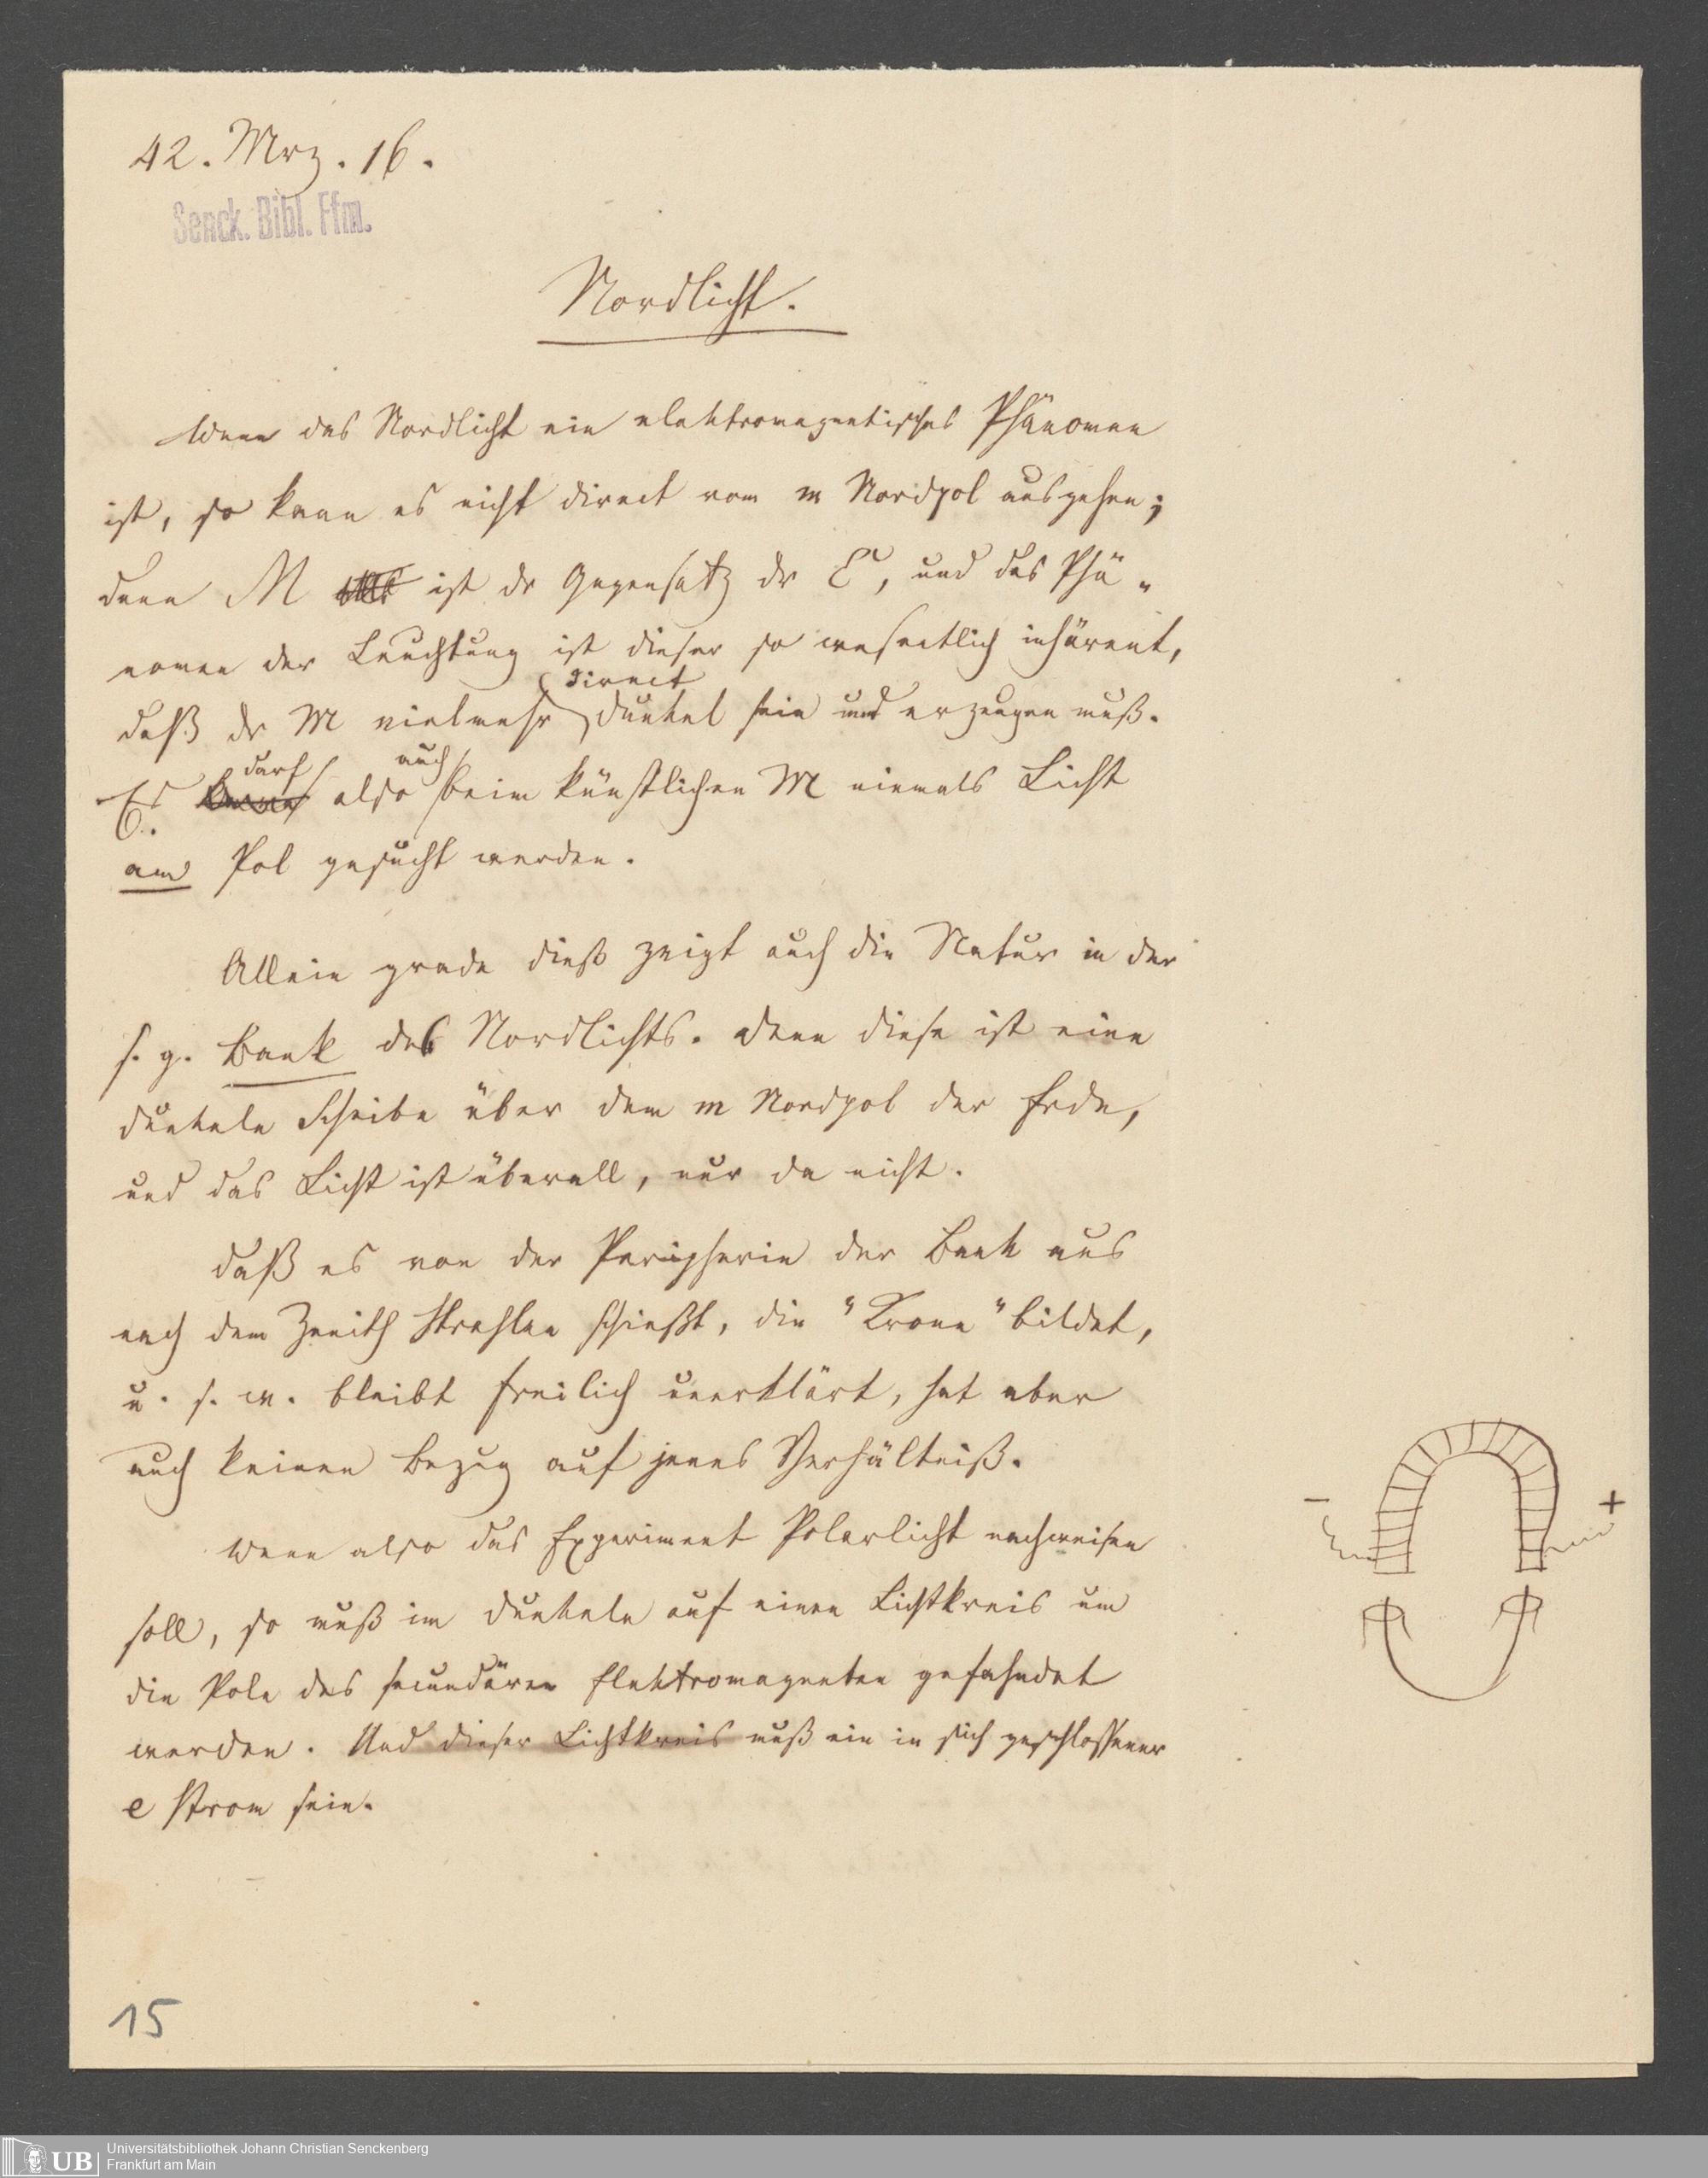 42. Mrz. 16.
Senck. Bibl. Ffm.
Nordlicht.
Wenn das Nordlicht ein elektromagnetisches Phänomen
ist, so kann es nicht direct vom m Nordpol ausgehen;
denn M ist dr Gegensatz dr E, und das Phä-
nomen der Leuchtung ist dieser so wesentlich inhärent,
direct
daß dr M vielmehr dunkel sein und erzeugen muß.
darf auch
Es also beim künstlichen M niemals Licht
am Pol gesucht werden.
Allein grade dieß zeigt auch die Natur in der
s. g. Bank des Nordlichts. Denn diese ist eine
dunkele Scheibe über dem m Nordpol der Erde,
und das Licht ist überall, nur da nicht.
Daß es von der Peripherie der Bank aus
nach dem Zenith Strahlen schießt, die "Krone" bildet,
u. s. w. bleibt freilich unerklärt, hat aber
auch keinen Bezug auf jenes Verhältniß.
Wenn also das Experiment Polarlicht nachweisen
soll, so muß im Dunkeln auf einen Lichtkreis um
die Pole des secundären Elektromagneten gefahndet
werden. Und dieser Lichtkreis muß ein in sich geschlossener
e Strom sein.
- +
15
UB
Universitätsbibliothek Johann Christian Senckenberg
Frankfurt am Main